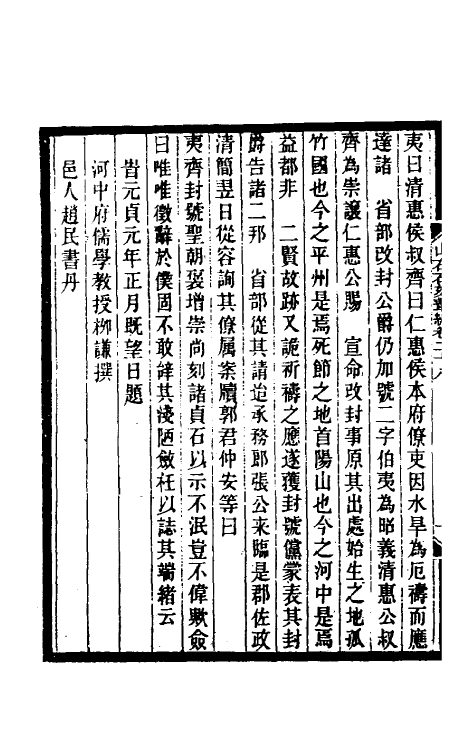 夷曰清惠侯叔齊曰仁惠侯本府僚吏因水旱為厄禱而應
達諸　省部改封公爵仍加號二字伯夷為昭義清惠公叔
齊為崇讓仁惠公賜　宣命改封事原其出處始生之地孤
竹國也今之平州是焉死節之地首陽山也今之河中是焉
益都非　二賢故跡又詭祈禱之應遂獲封號儻蒙表其封
爵告諸二邦　省部從其請迨承務郎張公来臨是郡佐政
清簡翌日從容詢其僚属案牘郭君仲安等曰
夷齊封號聖朝褒增崇尚刻諸貞石以示不泯豈不偉歟僉
曰唯唯徵辭於僕固不敢辞其淺陋斂衽以誌其端緒云
旹元貞元年正月既望日題
河中府儒學教授栁謙撰
邑人趙民書丹